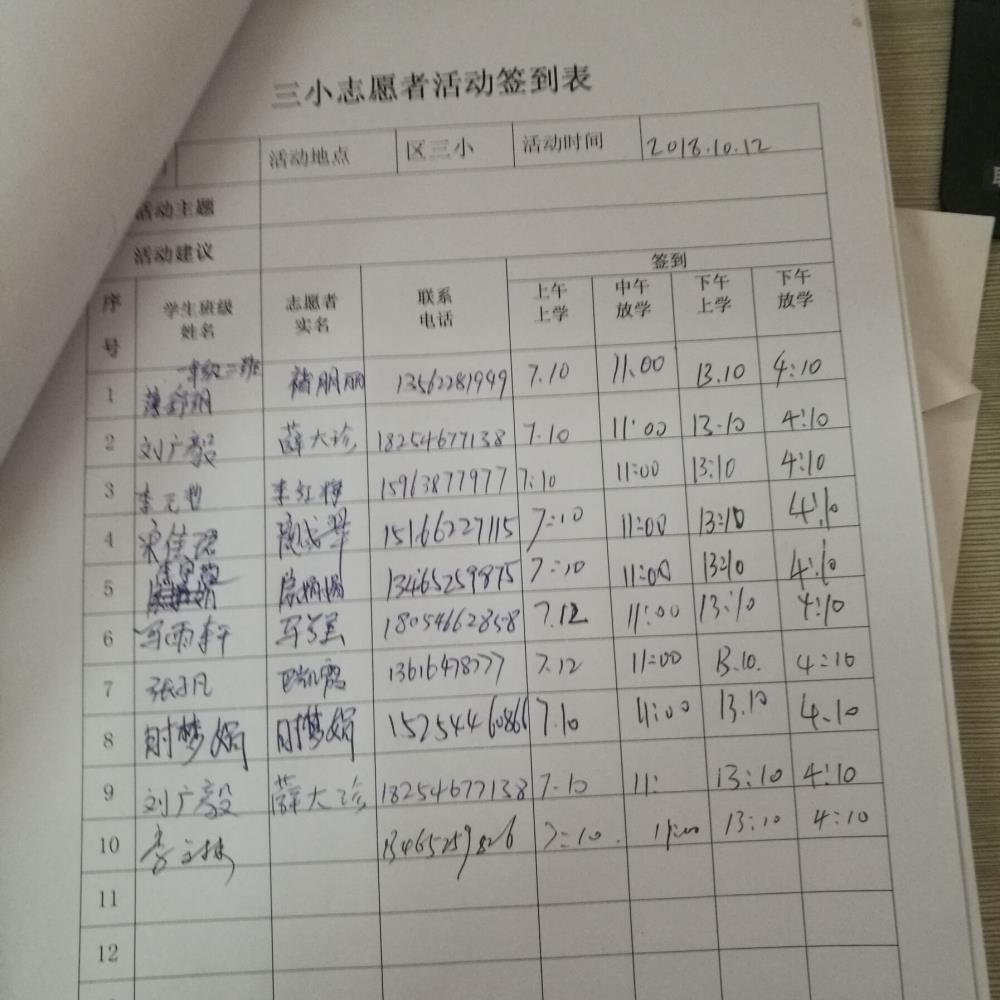 三小志愿者活动签到表
活动地点 区三小 活动时间 2018.10.12
活动主题
活动建议
签到
序号 学生班级姓名 志愿者实名 联系电话 上午上学 中午放学 下午上学 下午放学
一年级二班
1 丽 13562281999 7.10 11:00 13.10 4:10
2 刘广毅 薛大珍 18254677138 7.10 11:00 13.10 4:10
3 李元 李红梅 15963877977 7:10 11:00 13:10 4:10
4 宋佳 15166227115 7:10 11:00 13:10 4:10
5 13465259875 7:10 11:00 13:10 4:10
6 雨轩 18054662858 7.12 11:00 13:10 4:10
7 张 凡 13616478777 7.12 11:00 13.10. 4:10
8 时梦娟 时梦娟 15254460866 7.10 11:00 13.10 4.10
9 刘广毅 薛大珍 18254677138 7.10 11: 13:10 4:10
10 李 13465259826 7:10. 11:00 13:10 4:10
11
12